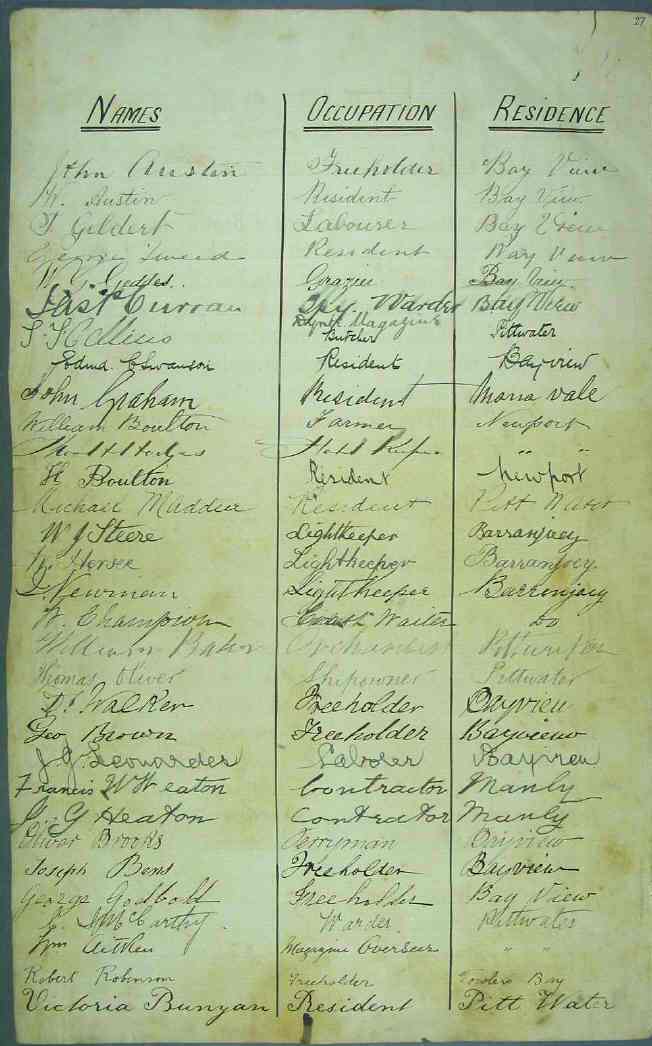 27
NAMES OCCUPATION RESIDENCE
John Austin Freeholder Bay View
W. Austin Resident Bay View
T Gildert Labourer Bay View
George Tweed Resident Bay View
W. G. Geddes. Grazier Bay View
Curran Warder Bay View
Powder Magazine
Collins Butcher Pittwater
Edmd. C Swanson Resident Bayview
John Graham Resident Mona Vale
William Boulton Farmer Newport
Hodges Hotel Keeper " "
H Boulton Resident Newport
Michael Madden Resident Pitt Water
W J Steere Lightkeeper Barranjoey
Hersee Lightkeeper Barranjoey
Newman Lightkeeper Barrenjoey
W. Champion Coast Waiter Do
William Baker Orchardist Pittwater
Thomas Oliver Shipowner Pittwater
Walker Freeholder Bayview
Geo Brown Freeholder Bayview
J G Leonarder Laborer Bayview
Francis W Heaton Contractor Manly
G Heaton Contrator Manly
Oliver Brooks Ferryman Bayview
Joseph Bens Freeholder Bayview
George Godbolt Freeholder Bay View
McCarthy. Warder. Pittwater
Wm Aitken Magazine Overseer "
Robert Robinson Freeholder Towlers Bay
Victoria Bunyan Resident Pitt Water